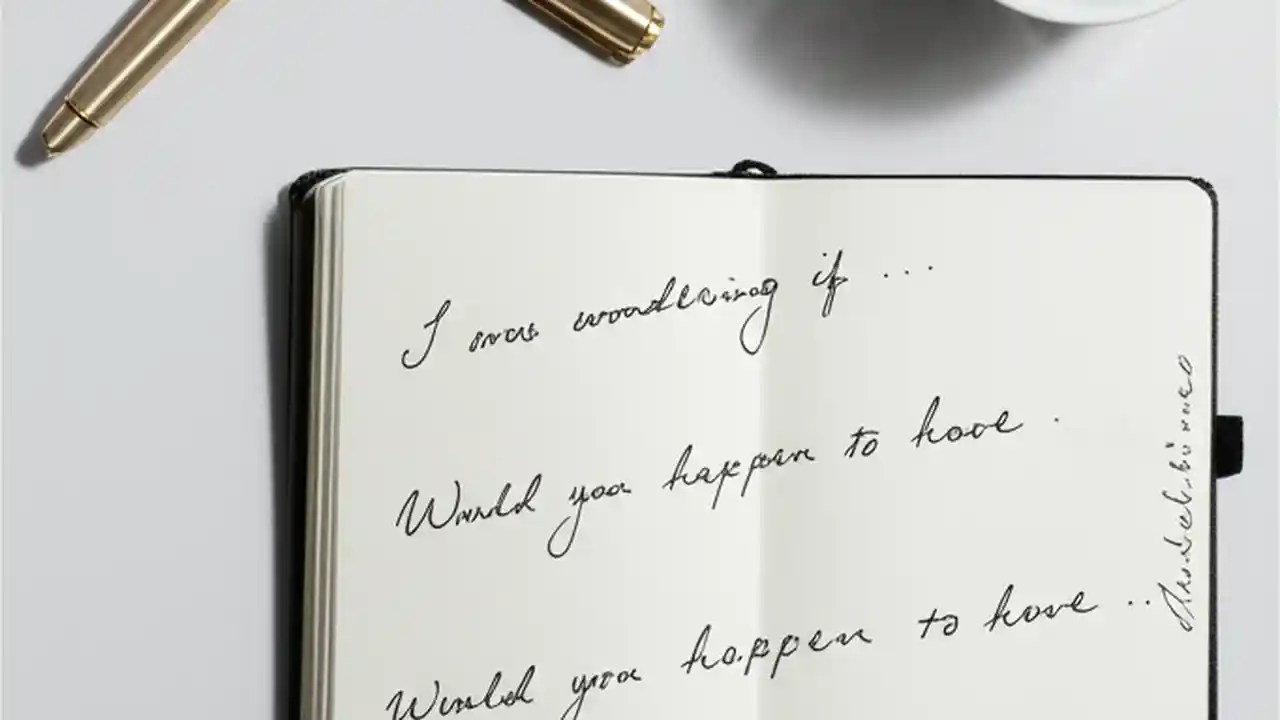 I was wondering if ...
Would you happen to have .
Would you happen to have ..